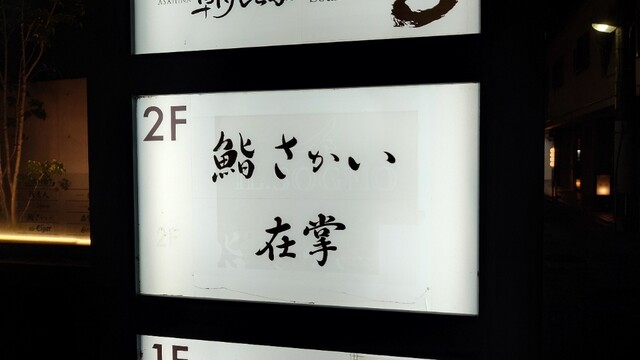 2F
鮨 さかい
在掌
1F